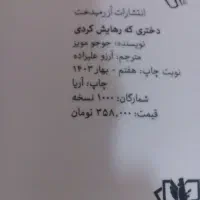 انتشارات آزرمیدخت
دختری که رهایش کردی
نویسنده: جوجو مویز
مترجم: آرزو علیزاده
نوبت چاپ: هفتم - بهار ۱۴۰۳
چاپ: آریا
شمارگان: ۱۰۰۰ نسخه
قیمت: ۳۵۸,۰۰۰ تومان